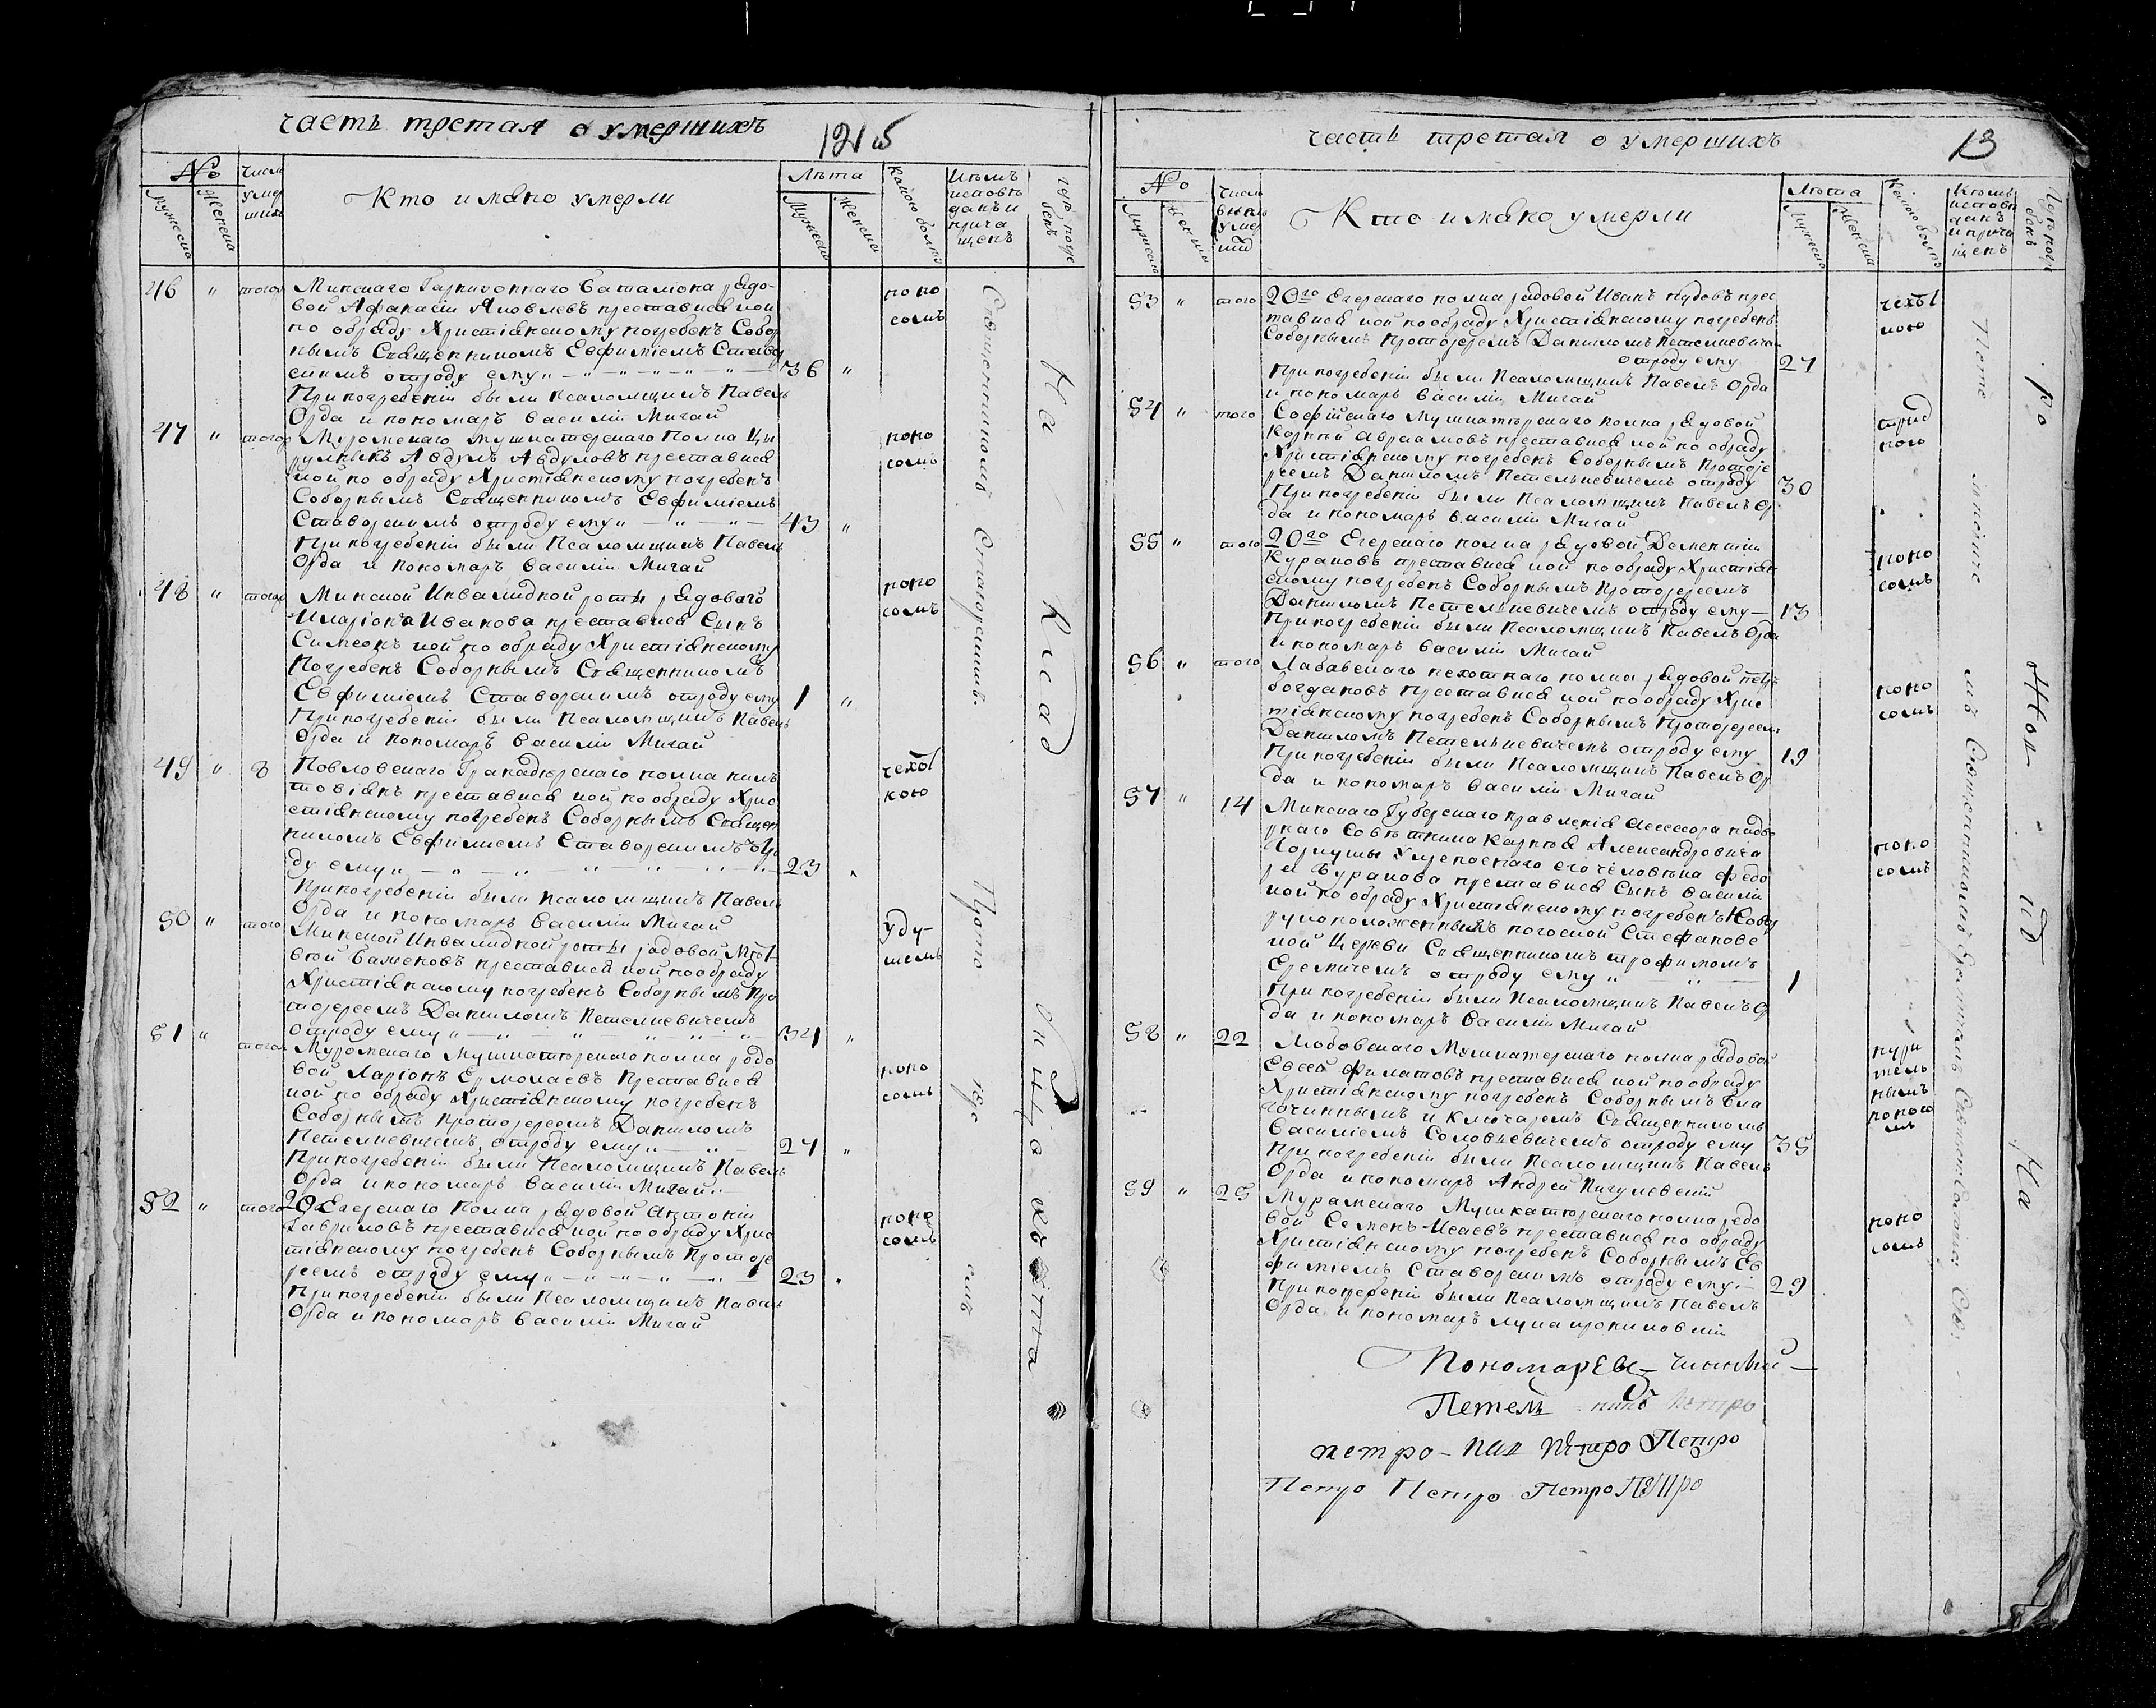 часть третая о умершихъ
1215
№
Мужеска
Женска
Числ
умер
шихъ
Кто имяно умерли
Лѣта
Мужеска
Женска
Какою болѣз
Кѣмъ
исповѣ
данъ и
прича
щенъ
гдѣ погре
бенъ
46 " тогож Минскаго Гарнизоннаго Баталиона рядо-
вой Афанасіи Яковлевъ преставися кои
по обряду Христіянскому погребенъ Собор
нымъ Священникомъ Евфиміемъ Ставор
скимъ отроду ему 36 "
поно
сомъ
При погребеніи были Псаломщикъ Павелъ
Орда и пономаръ Василіи Мигай
47 " тогож Муромскаго мушкатерскаго полка Цы
рулникъ Авдумъ Авдумовъ преставися
кой по обряду Христіянскому погребенъ
Соборнымъ Священникомъ Евфиміемъ
Ставорскимъ отроду ему 43 "
поно
сомъ
При погребеніи были Псаломщикъ Павелъ
Орда и пономаръ Василіи Мигай
48 " тогож Минской Инвалидной роты рядоваго
Иларіона Иванова преставися Сынъ
Симеонъ кой по обряду Христіянскому
погребенъ Соборнымъ Священникомъ
Евфиміемъ Ставорскимъ отроду ему 1 "
поно
сомъ
При погребеніи были Псаломщикъ Павелъ
Орда и пономаръ Василіи Мигай
49 " 8 Повловскаго Гранадерскаго полка
преставися кой по обряду Хрис
стіянскому погребенъ Соборнымъ Священ
никомъ Евфиміемъ Ставорскимъ отро
ду ему 23
чехот
кою
При погребеніи были Псаломщикъ Павелъ
Орда и пономаръ Василіи Мигай
50 " того Минской Инвалидной роты рядовой
преставися кой по обряду
Христіянскому погребенъ Соборнымъ Про
тоіереемъ Даниломъ Петелкевичемъ
отроду ему 34 "
уду-
шьемъ
51 " тогож Муромскаго мушкатерскаго полка рядо
вой Ларіонъ Ермолаевъ Преставися
кой по обряду Христіянскому погребенъ
Соборнымъ Протоіереемъ Даниломъ
Петелкевичемъ отроду ему 27 "
поно
сомъ
При погребеніи были Псаломщикъ Павелъ
Орда и пономаръ Василіи Мигай
52 " тогож 20го Егерскаго Полка рядовой Антоніи
Гавриловъ преставися кой по обряду Хрис
тіянскому погребенъ Соборнымъ Протоіе
реемъ отроду ему 23
поно
сомъ
При погребеніи были Псаломщикъ Павелъ
Орда и пономаръ Василіи Мигай
Священникомъ Ставорскимъ. Прото
На Клад бищѣ
часть третая о умершихъ
13
№
Мужеска
Женска
Числ
умер
ших
Кто имяно умерли
Лѣта
Мужеска
Женска
Какою болѣз
Кѣмъ
исповѣ
данъ
и прича
щенъ
Гдѣ погре
бенъ
53 " того 20го Егерскаго полка рядовой Иванъ Кудовъ прес
тавися кой по обряду Христіянскому погребенъ
Соборнымъ Протоіереемъ Даниломъ Петелкевичемъ
отроду ему 27
чехот
кою
При погребеніи были Псаломщикъ Павелъ Орда
и пономаръ Василіи Мигай
54 " того Софійскаго мушкатерскаго полка рядовой
Корній Авраамовъ преставися кой по обряду
Христіянскому погребенъ Соборнымъ Протоіе
реемъ Даниломъ Петелкевичемъ отроду 30
При погребеніи были Псаломщикъ Павелъ Ор
да и пономаръ Василіи Мигай
55 " того 20го Егерскаго полка рядовой Дементіи
Курановъ преставися кой по обряду Христіян
скому погребенъ Соборнымъ Протоіереемъ
Даниломъ Петелкевичемъ отроду ему 13
поно
сомъ
При погребеніи были Псаломщикъ Павелъ Орда
и пономаръ Василіи Мигай
56 " того Лабавскаго пехотнаго полка рядовой Петръ
Богдановъ преставися кой по обряду Хрис
тіянскому погребенъ Соборнымъ Протоіереемъ
Даниломъ Петелкевичемъ отроду ему 19
поно
сомъ
При погребеніи были Псаломщикъ Павелъ Ор
да и пономаръ Василіи Мигай
57 " 14 Минскаго Губерскаго правленія Асессора надво
рнаго Совѣтника Карпія Александровича
крепоснаго его человѣка Федо
ра Буракова преставися Сынъ Василіи
кой по обряду Христіянскому погребенъ Ново
рукоположеннымъ
ской Церкви Священникомъ Трофимомъ
Еремичемъ отроду ему 1
поно
сомъ
При погребеніи были Псаломщикъ Павелъ Ор
да и пономаръ Василіи Мигай
58 " 22 Мушкатерскаго полка рядовой
Евсей Филатовъ преставися кой по обряду
Христіянскому погребенъ Соборнымъ Бла
гочиннымъ и Ключаремъ Священникомъ
Василіемъ Соловьевичемъ отроду ему 35
поносо
мъ
При погребеніи были Псаломщикъ Павелъ
Орда и пономаръ Андрей Пигулевскій
59 " 25 Мурамскаго Мушкатерскаго полка рядо
вой Семенъ Исаевъ преставися по обряду
Христіянскому погребенъ Соборнымъ Ев
фиміемъ Ставорскимъ отроду ему 29
поно
сомъ
При погребеніи были Псаломщикъ Павелъ
Орда и пономаръ
Пономаревы
Петель Петро
петро Петро Петро
Петро Петро Петро Петро